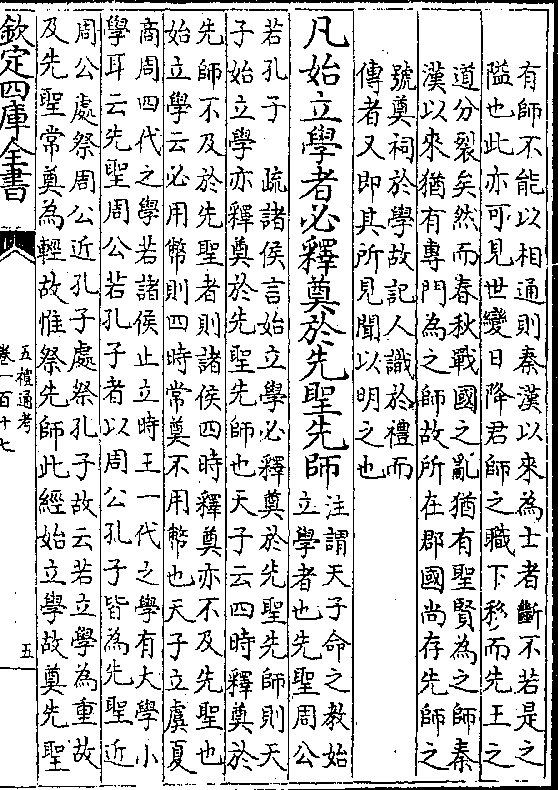 有師不能以相通則秦漢以來為士者斷不若是之
隘也此亦可見世變日降君師之職下移而先王之
道分裂矣然而春秋戰國之亂猶有聖賢為之師秦
漢以來猶有專門為之師故所在郡國尚存先師之
號奠祠於學故記人識於禮而
傳者又即其所見聞以明之也
凡始立學者必釋奠於先聖先師
注謂天子命之教始
立學者也先聖周公
若孔子 疏諸侯言始立學必釋奠於先聖先師則天
子始立學亦釋奠於先聖先師也天子云四時釋奠於
先師不及於先聖者則諸侯四時釋奠亦不及先聖也
始立學云必用幣則四時常奠不用幣也天子立虞夏
商周四代之學若諸侯止立時王一代之學有大學小
學耳云先聖周公若孔子者以周公孔子皆為先聖近
周公處祭周公近孔子處祭孔子故云若立學為重故
及先聖常奠為輕故惟祭先師此經始立學故奠先聖
欽定四庫全書
五禮通考
卷一百十七
五